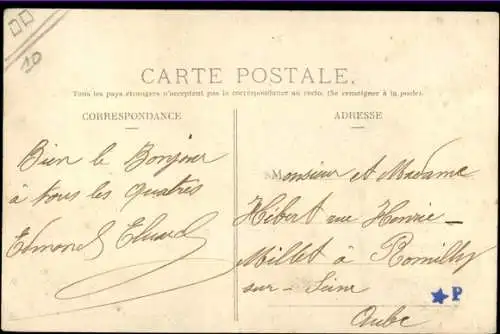 10
CARTE POSTALE.
Tous les pays étrangers n'acceptent pas la correspondance au recto. (Se renseigner à la poste).
CORRESPONDANCE
Bien le Bonjour
à tous les quatres
Edmond
ADRESSE
Monsieur et Madame
Hébert rue Honrie-
Millet à Romilly
sur-Seine
Aube
P